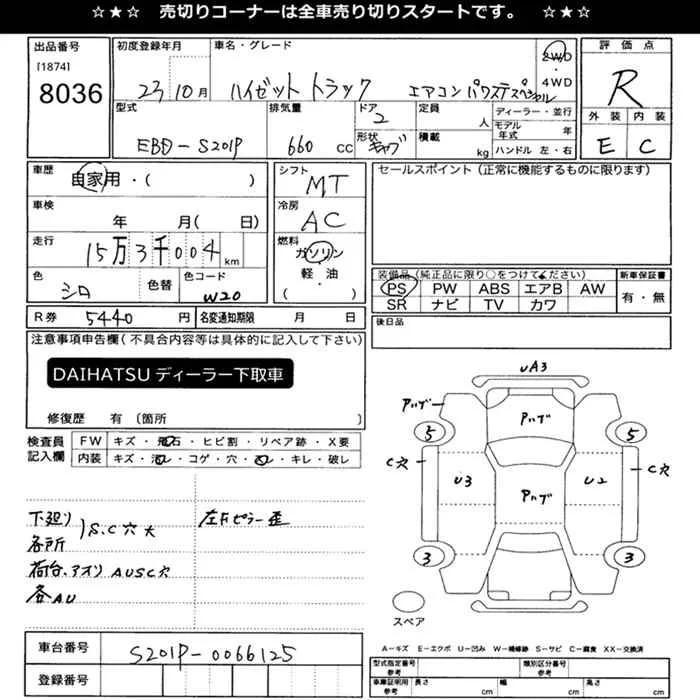 ☆★☆ 売切りコーナーは全車売り切りスタートです。 ☆★☆
出品番号 初度登録年月 車名・グレード 評価点
[1874]
8036 23 10月 ハイゼット トラック エアコン パワステスペシャル 2WD・4WD R
型式 排気量 ドア 定員 ディーラー・並行 外装 内装
EBD-S201P 660 CC 2 人 モデル年式 年 E C
形状 キャブ 積載 kg ハンドル 左・右
車歴 シフト セールスポイント (正常に機能するものに限ります)
自家用・( ) MT
車検 冷房
年 月( 日) AC
走行 燃料
15万3千004 km ガソリン
軽・油
( )
色 色替 色コード 装備品 (純正品に限り○をつけてください) 新車保証書
シロ W20 PS PW ABS エアB AW 有・無
SR ナビ TV カワ
R券 5440 円 名変通知期限 月 日 後日品
注意事項申告欄 (不具合内容等は具体的に記入して下さい)
DAIHATSU ディーラー下取車
修復歴 有 (箇所 )
検査員 FW キズ・飛石・ヒビ割・リペア跡・X要
記入欄 内装 キズ・・コゲ・穴・・キレ・破レ
下廻り
各所 S.C穴大
左Fピラー歪
荷台、アオリ AUSC穴
各AU
UA3
Pハゲ
Pハゲ
5 5
C穴 C穴
U3 Pハゲ U2
3 3
スペア
A-キズ E-エクボ U-凹み W-補修跡 S-サビ C-腐食 XX-交換済
車台番号 S201P-0066125
登録番号
型式指定番号 参考 類別区分番号 参考
車庫証明用 参考 長さ cm 幅 cm 高さ cm